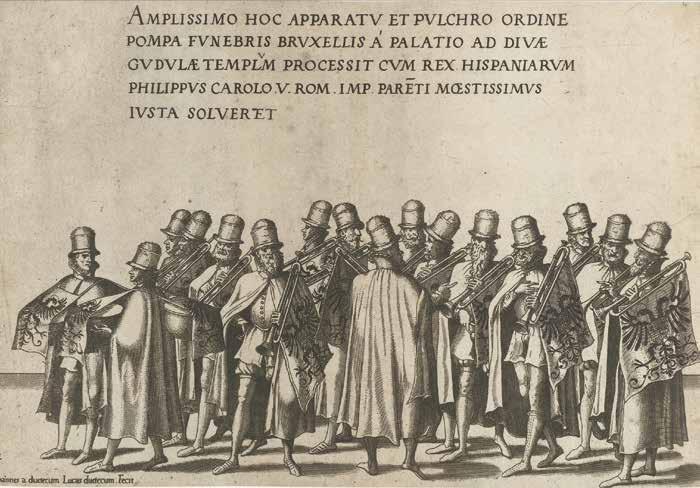 AMPLISSIMO HOC APPARATV ET PVLCHRO ORDINE
POMPA FVNEBRIS BRVXELLIS Á PALATIO AD DIVÆ
GVDVLÆ TEMPLVM PROCESSIT CVM REX HISPANIARVM
PHILIPPVS CAROLO V. ROM. IMP. PARĒTI MŒSTISSIMVS
IVSTA SOLVERET
a ductecum Lucas ductecum Fecit